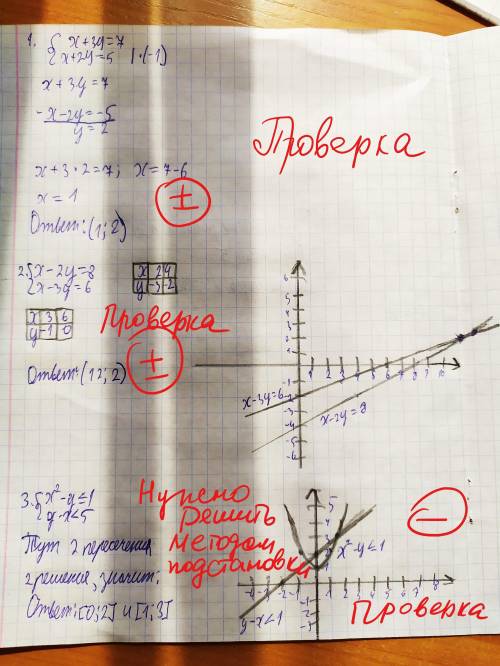 1. { x+3y=7
{ x+2y=5 |·(-1)
x+3y=7
-x-2y=-5
y=2
x+3·2=7; x=7-6
x=1
Ответ: (1; 2)
Проверка
±
2. { x-2y=8
{ x-3y=6
x 2 4
y -3 -2
x 3 6
y -1 0
Проверка
±
Ответ: (12; 2)
x-3y=6
x-2y=8
3. { x²-y≤1
{ y-x<5
Тут 2 пересечения
2 решения, значит:
Ответ: [0; 2] и [1; 3]
Нужно
решить
методом
подстановки
x²-y≤1
y-x<1
−
Проверка